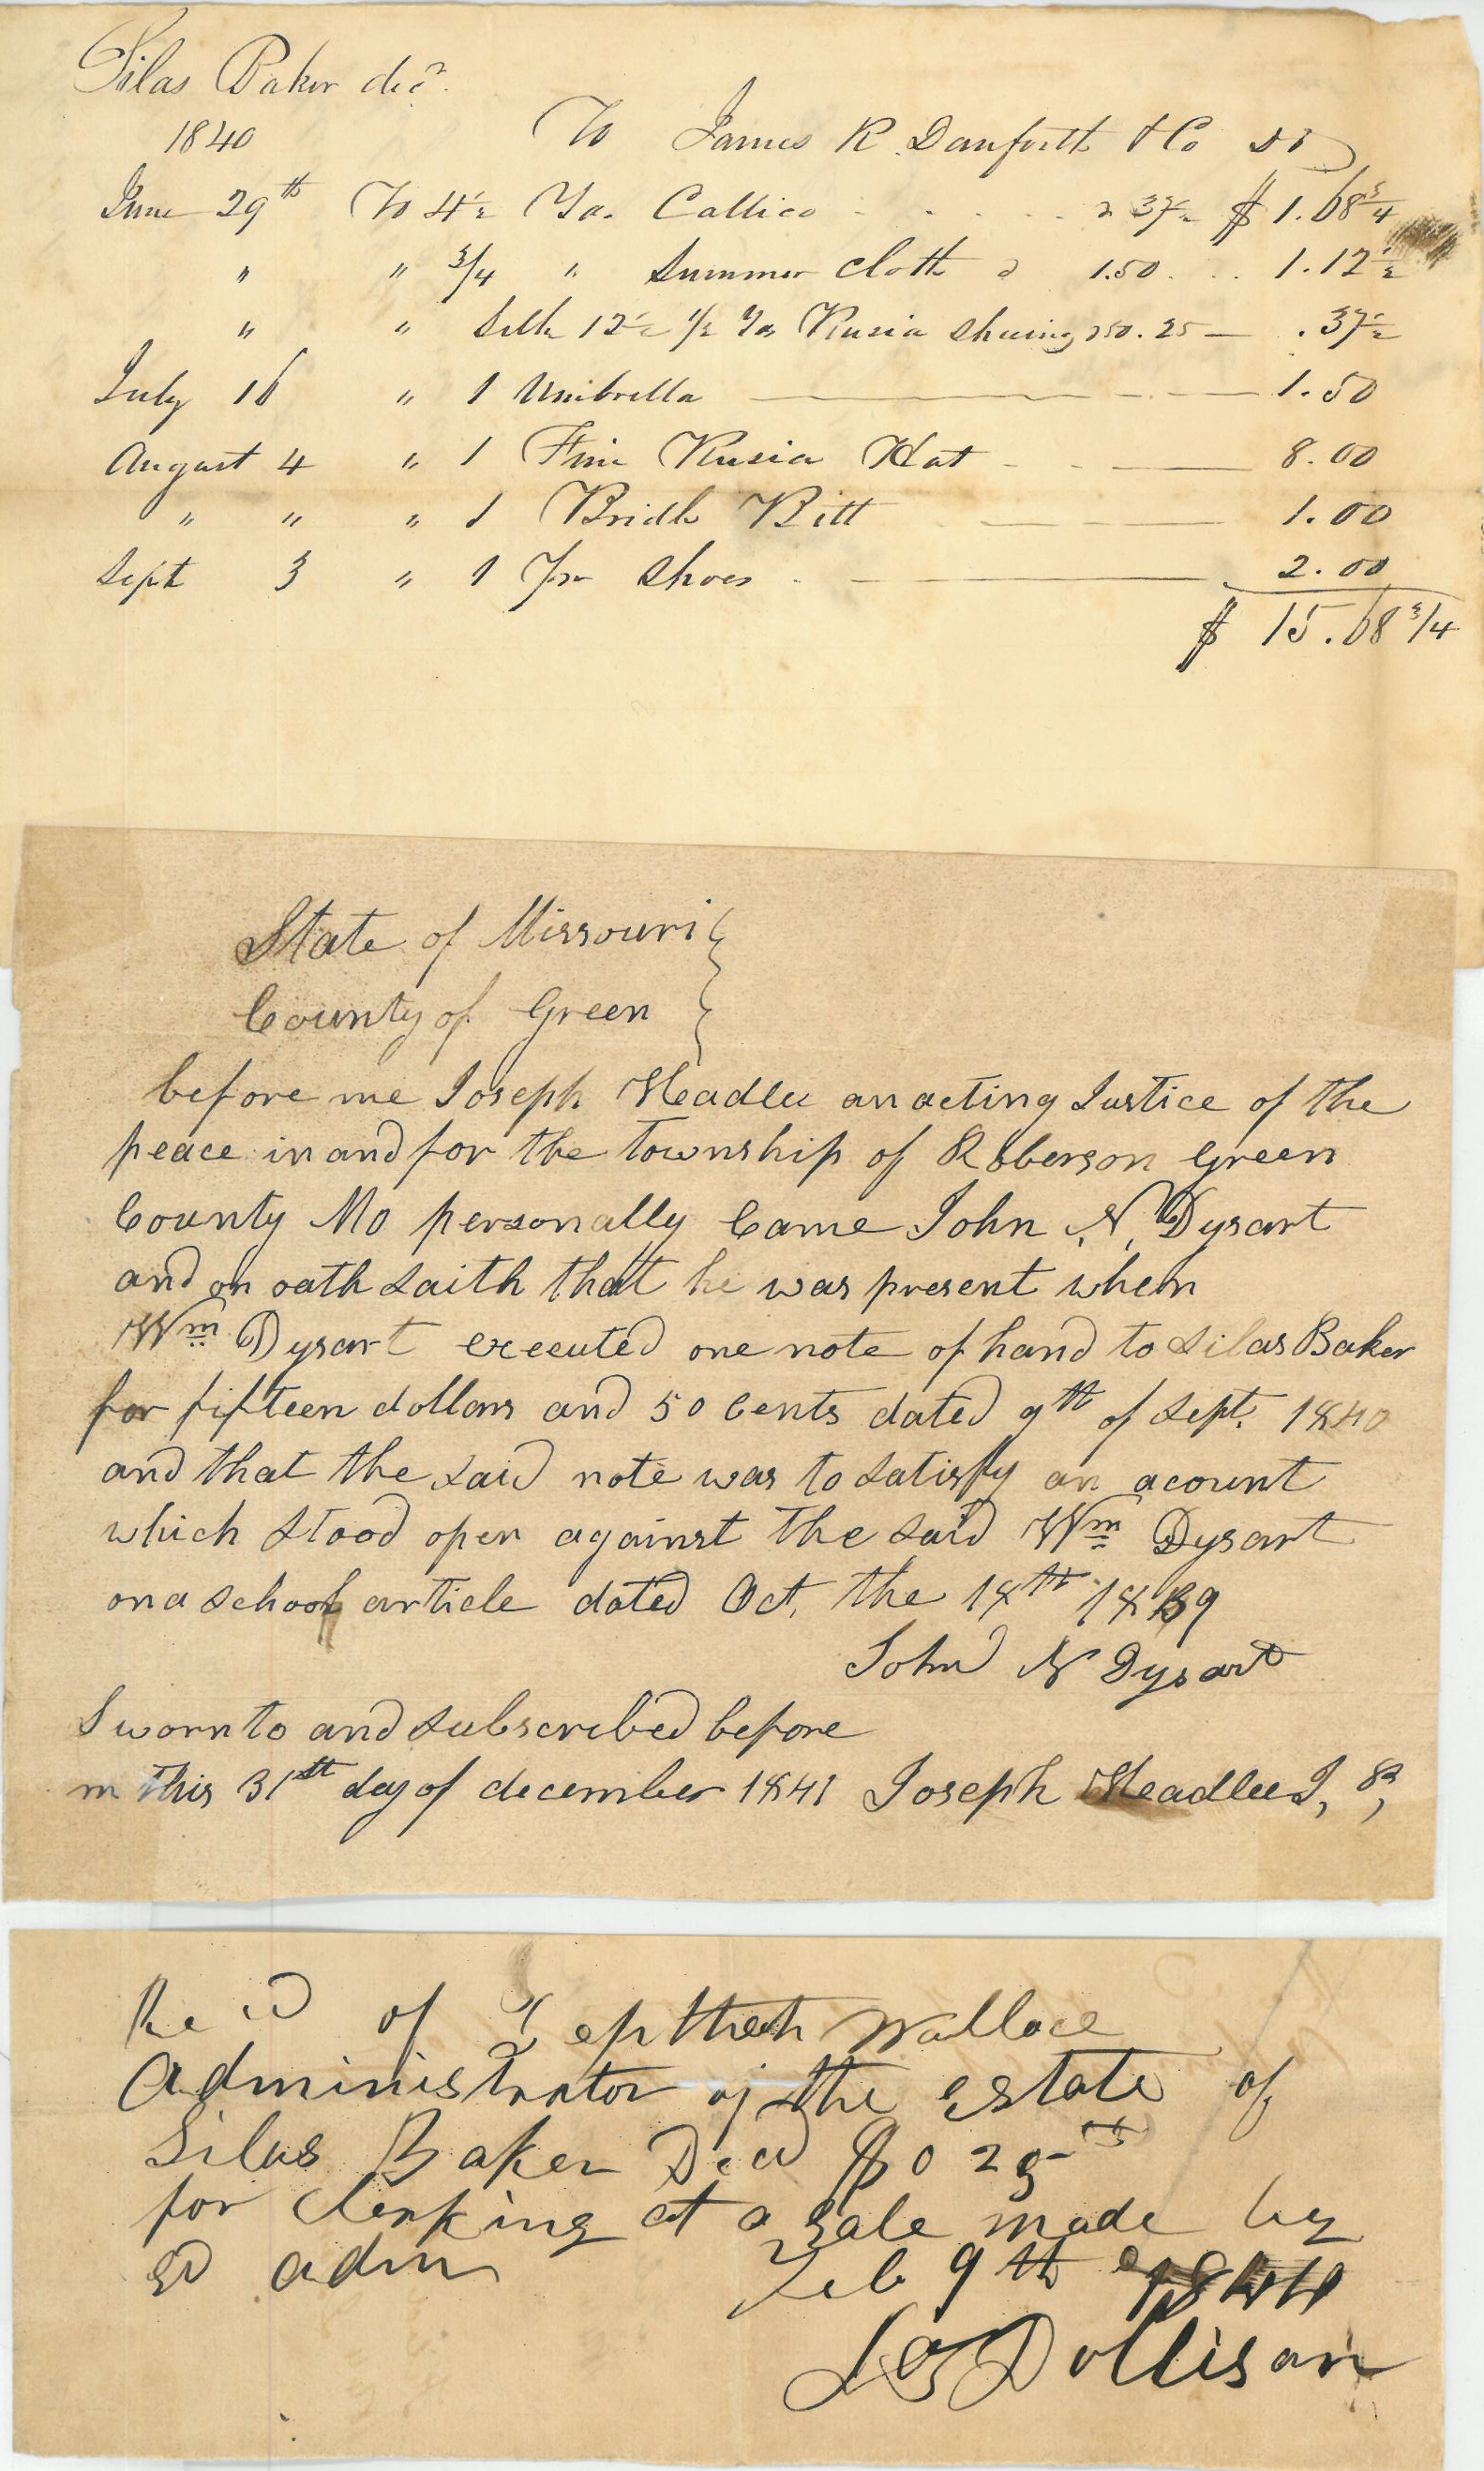 Silas Baker decd.
1840 To James R. Danforth & Co Dr
June 29th To 4½ Yds. Callico . . . . . a 37½ $ 1.68¾
" " 3/4 " Summer Cloth a 1.50 . . . 1.12½
" " Silk 12½ 1/2 Yds Rusia Sheeing a 50 . 25 — .37½
July 16 " 1 Umbrella — 1.50
August 4 " 1 Fine Rusia Hat — 8.00
" " " 1 Bridle Bitt — 1.00
Sept 3 " 1 Pr Shoes — 2.00
$ 15.68 3/4
State of Missouri
County of Green
before me Joseph Headlee an acting Justice of the
peace in and for the township of Roberson Green
County Mo personally Came John N, Dysart
and on oath saith that he was present when
Wm Dysart executed one note of hand to Silas Baker
for fifteen dollars and 50 Cents dated 9th of Sept. 1840
and that the said note was to satisfy an acount
which stood open against the said Wm Dysart
on a school article dated Oct, the 18th 1839
John N Dysart
Sworn to and subscribed before
m this 31st day of december 1841 Joseph Headlee J, P,
Recd of Jepthah Wallace
Administrator of the Estate of
Silas Baker Decd $0 25 cts
for clerking at a sale made by
sd adm Feb 9th 1841
Dollison